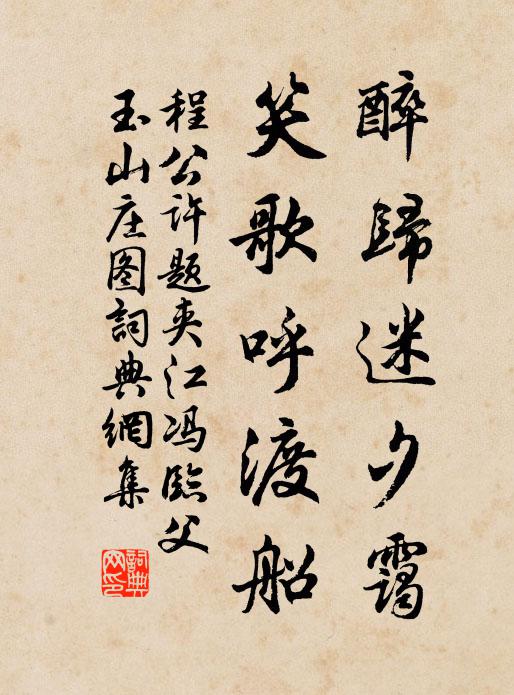 醉歸迷夕靄
笑歌呼渡船
程公許題夹江冯臨父
玉山庄图詞典網集
詞典网印